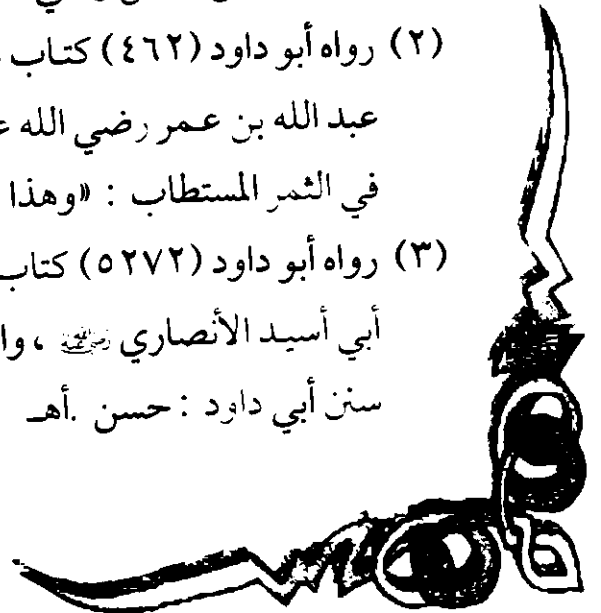 (٢) رواه أبو داود (٤٦٢) كتاب
عبد الله بن عمر رضي الله
في الثمر المستطاب : «وهذا
(٣) رواه أبو داود (٥٢٧٢) كتاب
أبي أسيد الأنصاري ، وا
سنن أبي داود : حسن .أهـ